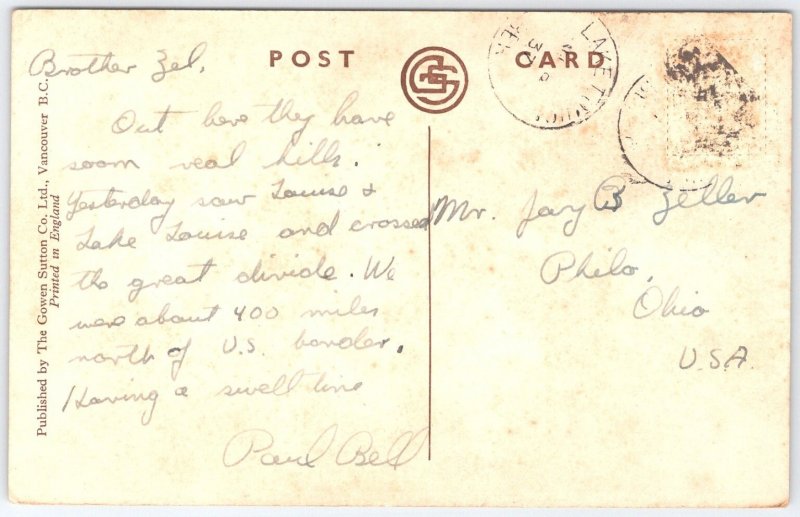 POST CARD
GSC
LAKE
Published by The Gowen Sutton Co. Ltd., Vancouver B.C.
Printed in England
Brother Zel,
Out here they have
soom real hills.
Yesterday saw Louise &
Lake Louise and crossed
the great divide. We
were about 400 miles
north of U.S. border.
Having a swell time
Paul Bell
Mr. Jay B Zeller
Philo,
Ohio
U.S.A.